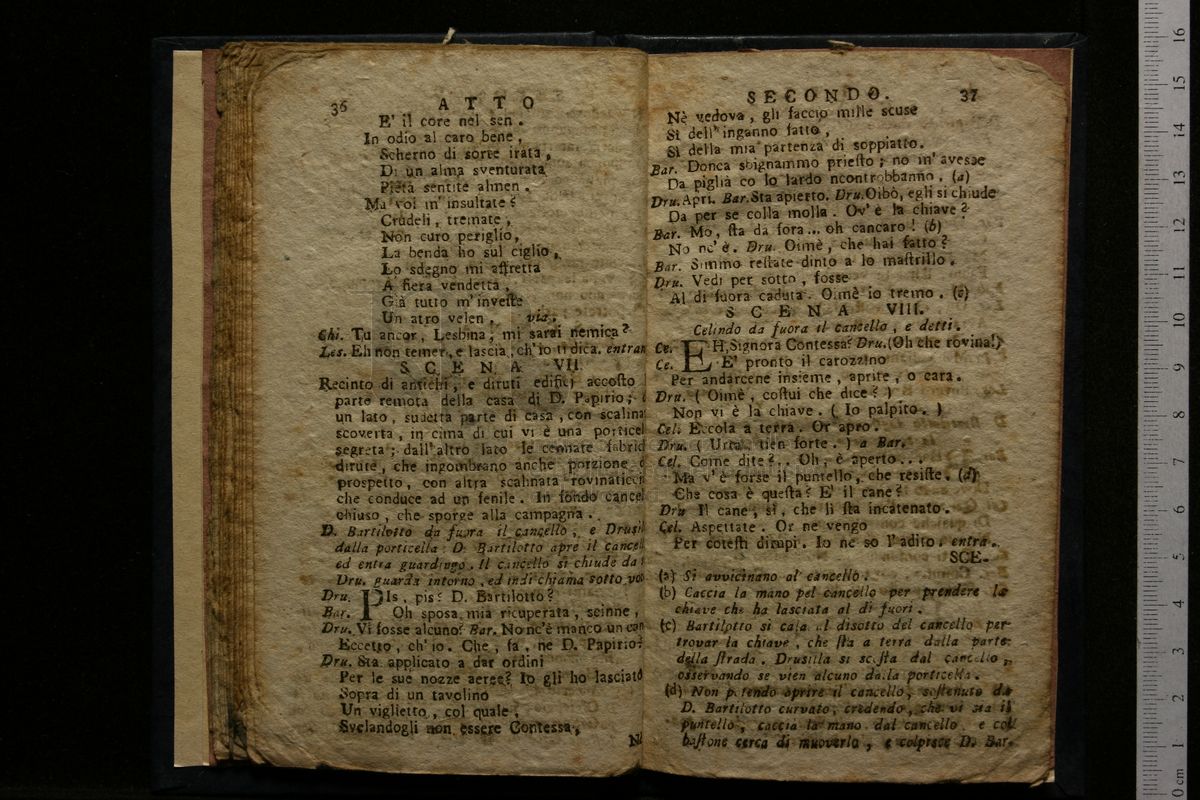 36 ATTO
E' il core nel sen.
In odio al caro bene,
Scherno di sorte irata,
Di un alma sventurata
Pietà sentite almen.
Ma voi m' insultate?
Crudeli, tremate,
Non curo periglio,
La benda ho sul ciglio,
Lo sdegno mi affretta
A fiera vendetta,
Già tutto m' investe
Un atro velen. via.
Chi. Tu ancor, Lesbina, mi sarai nemica?
Les. Eh non temer, e lascia, ch' io ti dica. entran
SCENA VII.
Recinto di antichi, e diruti edificj accosto
parte remota della casa di D. Papirio;
un lato, sudetta parte di casa, con scalina
scoverta, in cima di cui vi è una porticel
segreta; dall' altro lato le cennate fabric
dirute, che ingombrano anche porzione d
prospetto, con altra scalinata rovinaticcia
che conduce ad un fenile. In fondo cancel
chiuso, che sporge alla campagna.
D. Bartilotto da fuora il cancello, e Drusil
dalla porticella: D. Bartilotto apre il cancell
ed entra guardingo. Il cancello si chiude da
Dru. guarda intorno, ed indi chiama sotto voc
Dru. PIs, pis? D. Bartilotto?
Bar. Oh sposa mia ricuperata, seinne,
Dru. Vi fosse alcuno? Bar. No nc'è manco un can
Eccetto, ch' io. Che, fa, ne D. Papirio?
Dru. Sta applicato a dar ordini
Per le sue nozze aeree? Io gli ho lasciato
Sopra di un tavolino
Un viglietto, col quale,
Svelandogli non essere Contessa,
Nè
SECONDO. 37
Nè vedova, gli faccio mille scuse
Sì dell' inganno fatto,
Sì della mia partenza di soppiatto.
Bar. Donca sbignammo priesto; no m' avesse
Da piglià co lo lardo ncontrobbanno. (a)
Dru. Apri. Bar. Sta apierto. Dru. Oibò, egli si chiude
Da per se colla molla. Ov' è la chiave?
Bar. Mo, sta da fora... oh cancaro! (b)
No nc' è. Dru. Oimè, che hai fatto?
Bar. Simmo restate dinto a lo mastrillo.
Dru. Vedi per sotto, fosse
Al di fuora caduta. Oimè io tremo. (c)
SCENA VIII.
Celindo da fuora il cancello, e detti.
Ce. EH, Signora Contessa? Dru. (Oh che rovina!)
Ce. E' pronto il carozzino
Per andarcene insieme, aprite, o cara.
Dru. (Oimè, costui che dice?)
Non vi è la chiave. (Io palpito.)
Cel. Eccola a terra. Or apro.
Dru. (Urta, tien forte.) a Bar.
Cel. Come dite?.. Oh, è aperto...
Ma v' è forse il puntello, che resiste. (d)
Che cosa è questa? E' il cane?
Dru Il cane, sì, che lì sta incatenato.
Cel. Aspettate. Or ne vengo
Per cotesti dirupi. Io ne so l' adito. entra.
SCE-
(a) Si avvicinano al cancello.
(b) Caccia la mano pel cancello per prendere la
chiave che ha lasciata al di fuori.
(c) Bartilotto si cala al disotto del cancello per
trovar la chiave, che sta a terra dalla parte
della strada. Drusilla si scosta dal cancello,
osservando se vien alcuno dalla porticella.
(d) Non potendo aprire il cancello, sostenuto da
D. Bartilotto curvato, credendo, che vi sia il
puntello, caccia la mano dal cancello, e col
bastone cerca di muoverlo, e colpisce D. Bar.
0 cm 1 2 3 4 5 6 7 8 9 10 11 12 13 14 15 16